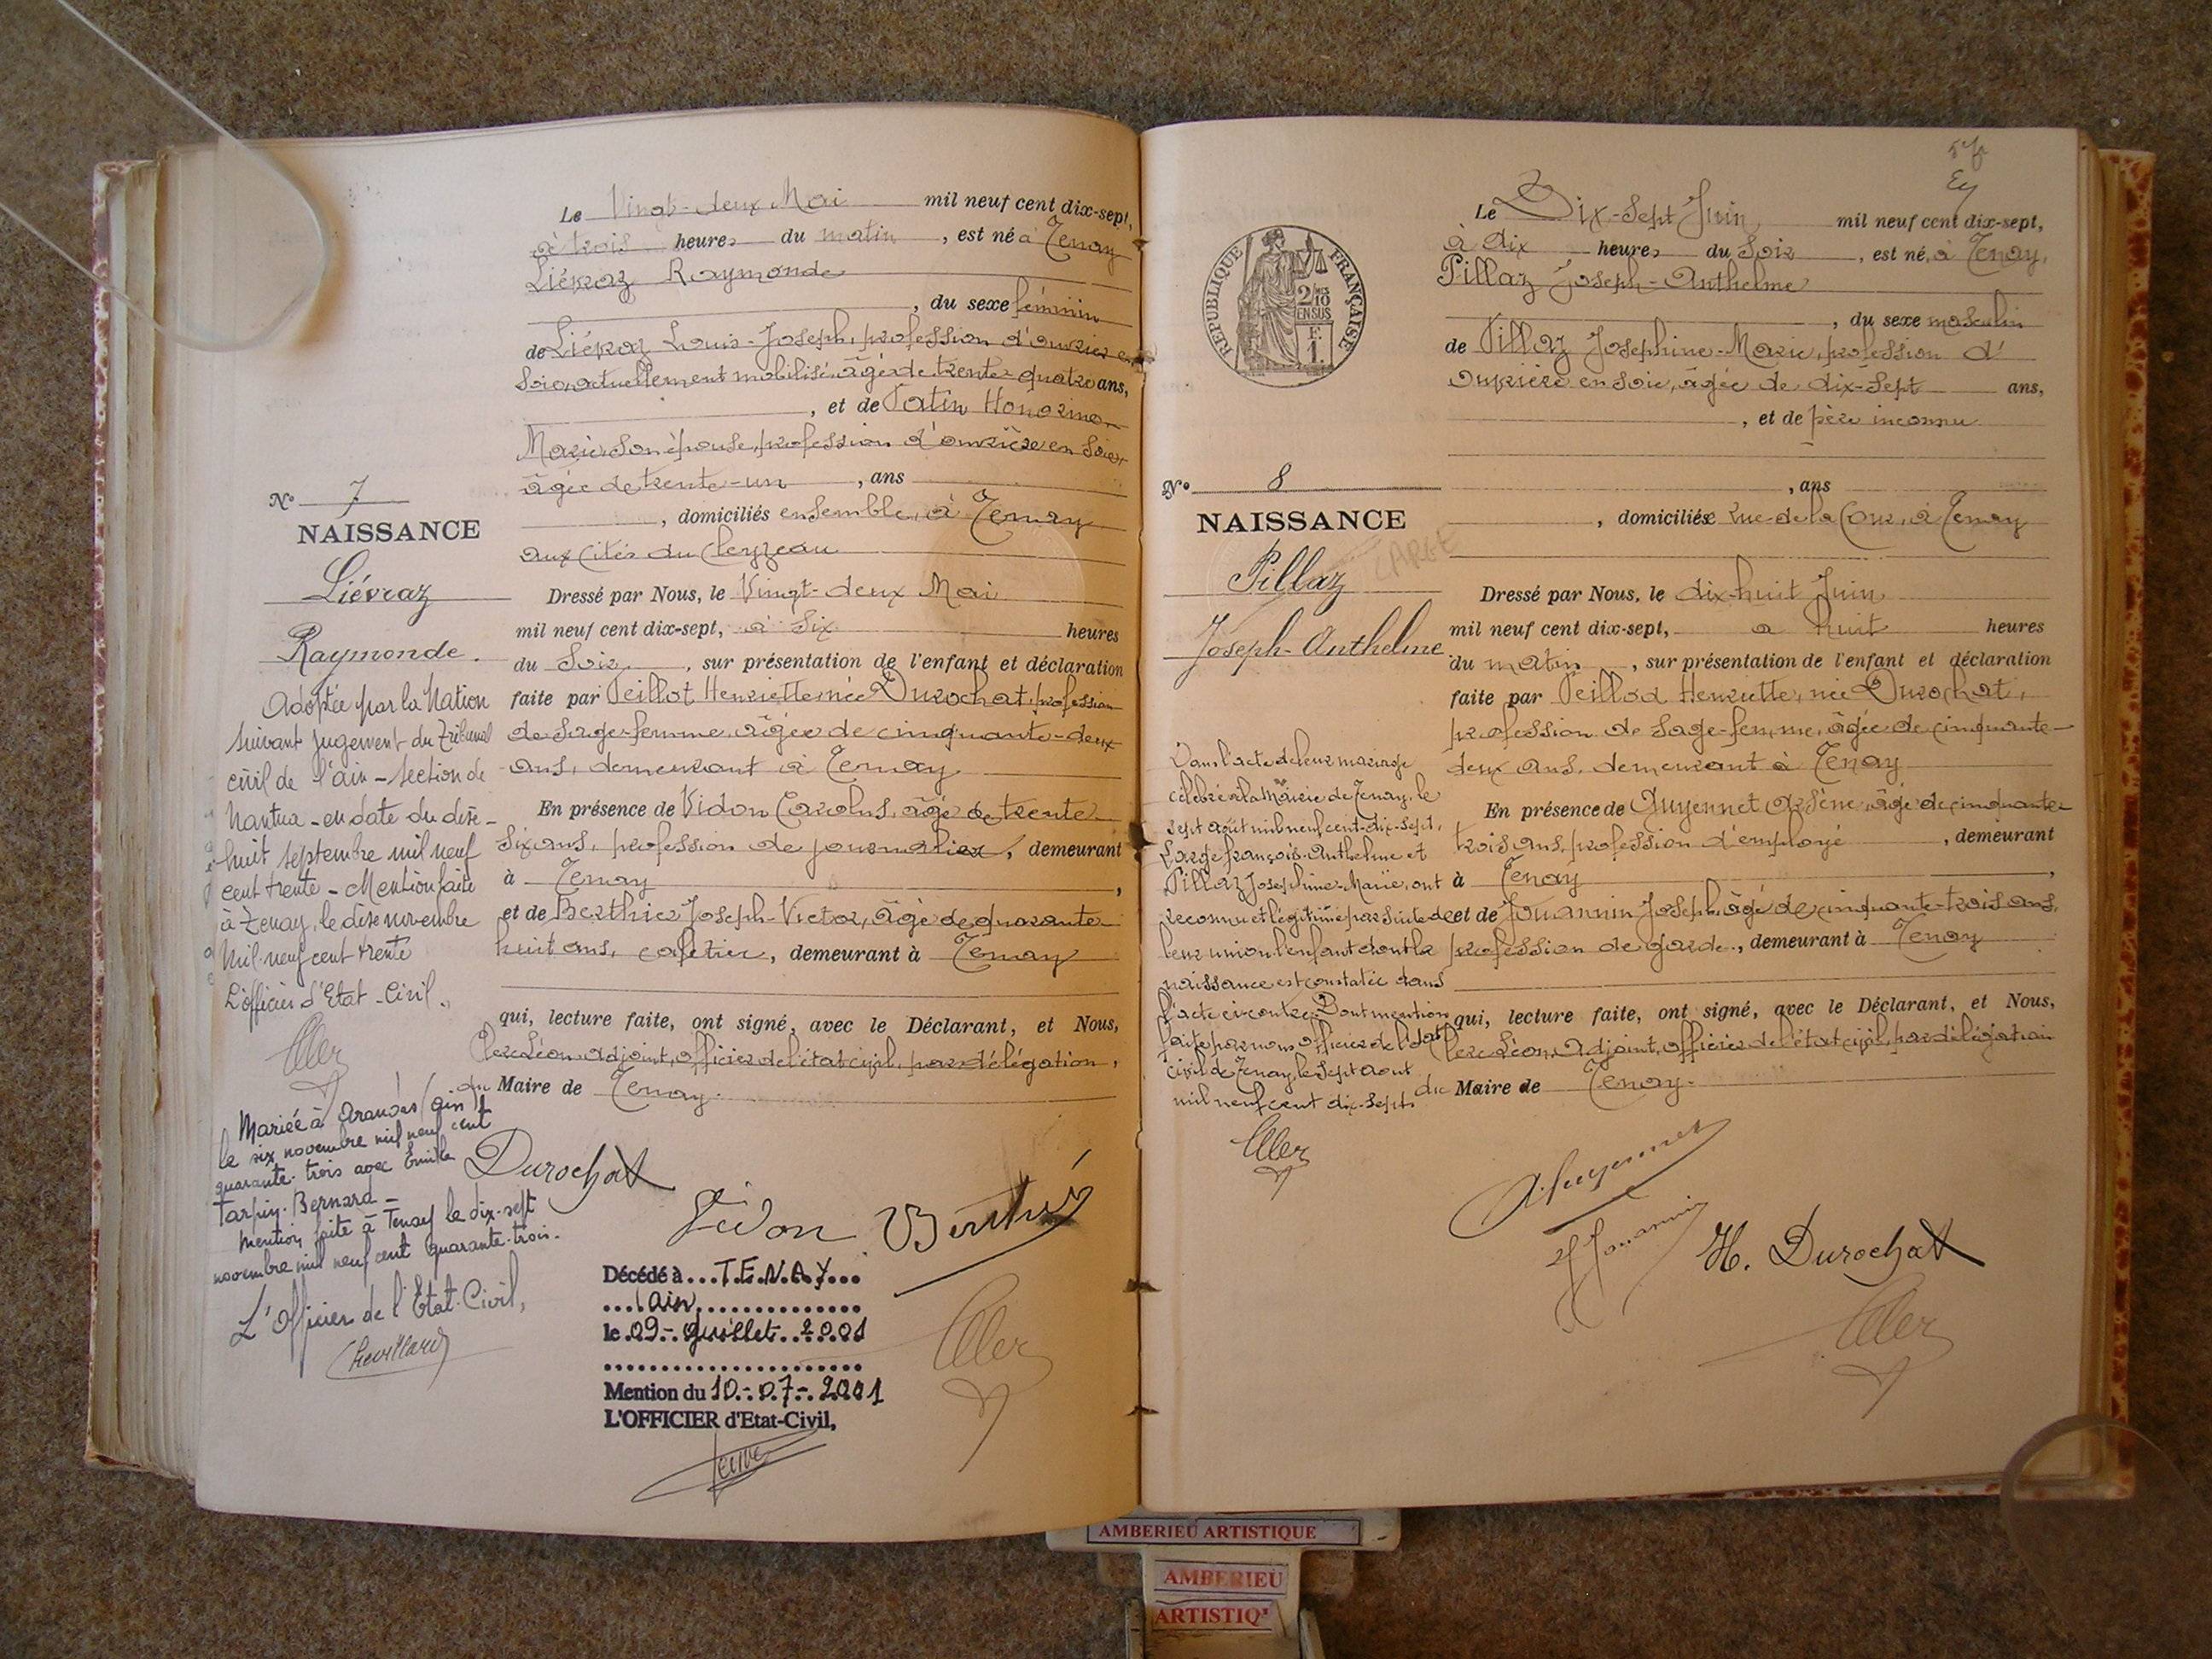 Le Vingt-deux Mai mil neuf cent dix-sept,
à trois heures du matin, est né à Tenay
Liévraz Raymonde
, du sexe féminin
de Liévraz Louis-Joseph, profession d'ouvrier en
soie, actuellement mobilisé, âgé de trente-quatre ans,
, et de Patin Honorine
Marie, son épouse, profession d'ouvrière en soie,
âgée de trente-un, ans
, domiciliés ensemble, à Tenay
aux cités du Cleyzeau
Dressé par Nous, le Vingt-deux Mai
mil neuf cent dix-sept, à six heures
du soir, sur présentation de l'enfant et déclaration
faite par Peillot Henriette née Durochat, profession
de sage-femme, âgée de cinquante-deux
ans, demeurant à Tenay
En présence de Vidon Carolus, âgé de trente
six ans, profession de journalier, demeurant
à Tenay,
et de Berthier Joseph-Victor, âgé de quarante
huit ans, cafetier, demeurant à Tenay
qui, lecture faite, ont signé, avec le Déclarant, et Nous,
Clerc Léon, adjoint, officier de l'état civil, par délégation,
du Maire de Tenay.
Durochat
Vidon
N° 7
NAISSANCE
Liévraz
Raymonde.
Adoptée par la Nation
suivant jugement du Tribunal
civil de l'ain - section de
Nantua - en date du dix-
huit septembre mil neuf
cent trente - Mention faite
à Tenay, le dix novembre
mil neuf cent trente
L'officier d'Etat-Civil.
Mariée à Arandas (ain)
le six novembre mil neuf cent
quarante-trois avec Emile
Tarpin-Bernard -
Mention faite à Tenay le dix-sept
novembre mil neuf cent quarante-trois.
L'Officier de l'Etat-Civil,
Chevillard
Décédé à ...T.E.N.A.Y...
...(ain)...
le .09.- Juillet..2001
Mention du 10.-.07-.2001
L'OFFICIER d'Etat-Civil,
REPUBLIQUE FRANÇAISE
2/10
EN SUS
F.
1.
Le Dix-Sept Juin mil neuf cent dix-sept,
à dix heures du soir, est né, à Tenay,
Pillaz Joseph-Anthelme
, du sexe masculin
de Pillaz Josephine-Marie, profession d'
ouvrière en soie, âgée de dix-sept ans,
, et de père inconnu
, ans
, domiciliée rue de la Cour, à Tenay
Dressé par Nous, le dix-huit Juin
mil neuf cent dix-sept, à huit heures
du matin, sur présentation de l'enfant et déclaration
faite par Peillod Henriette, née Durochat,
profession de sage-femme, âgée de cinquante-
deux ans, demeurant à Tenay
En présence de Guyennet Arsène, âgé de cinquante-
trois ans, profession d'employé, demeurant
à Tenay,
et de Jouannin Joseph, âgé de cinquante-trois ans,
profession de garde, demeurant à Tenay
qui, lecture faite, ont signé, avec le Déclarant, et Nous,
Clerc Léon, Adjoint, officier de l'état civil, par délégation
du Maire de Tenay.
H. Durochat
N° 8
NAISSANCE
LARGE
Pillaz
Joseph-Anthelme
Dans l'acte de leur mariage
célébré à la Mairie de Tenay, le
sept août mil neuf cent-dix-sept,
Large François-Anthelme et
Pillaz Josephine-Marie, ont
reconnu et légitimé par suite de
leur union l'enfant dont la
naissance est constatée dans
l'acte ci-contre. Dont mention
faite par nous officier de l'état
civil de Tenay, le sept août
mil neuf cent dix-sept.
AMBERIEU ARTISTIQUE
AMBERIEU
ARTISTIQ'